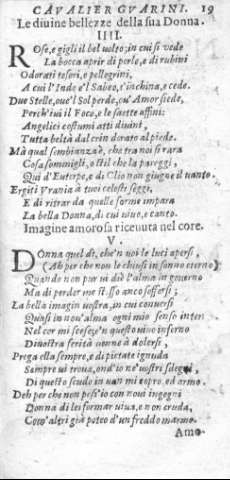 CAVALIER GVARINI. 19
Le diuine bellezze della sua Donna.
IIII.
ROse, e gigli il bel uolto, in cui si vede
La bocca aprir di perle, e di rubini
Odorati tesori, e pellegrini,
A cui l'Indo e'l Sabeo, t'inchina, e cede.
Due Stelle, oue'l Sol perde, ou' Amor siede,
Perch'iui il Foco, e le saette affini:
Angelici costumi atti diuini,
Tutta beltà dal crin dorato al piede.
Ma qual sembianza è, che tra noi si rara
Cosa somigli, o stil che la pareggi,
Qui d'Euterpe, e di Clio non giugne il uanto.
Ergiti Vrania à tuoi celesti seggi,
E di ritrar da quelle forme impara
La bella Donna, di cui uiuo, e canto.
Imagine amorosa riceuuta nel core.
V.
DOnna quel dì, che'n uoi le luci apersi,
(Ah per che non le chiusi in sonno eterno)
Quando non pur ui diè l'alma in gouerno
Ma di perder me stesso anco soffersi;
La bella imagin uostra, in cui conuersi
Quasi in nou' alma ogni mio senso interi
Nel cor mi scese, e'n questo uiuo inferno
Di uostra ferità uenne à dolersi,
Prega ella sempre, e di pietate ignuda
Sempre ui troua, ond'io ne' uostri sdegni,
Di questo scudo in uan mi copro, ed armo.
Deh per che non poss'io con noui ingegni
Donna di lei formar uiua, e non cruda,
Com'altri già poteo d'un freddo marmo.
Amo-